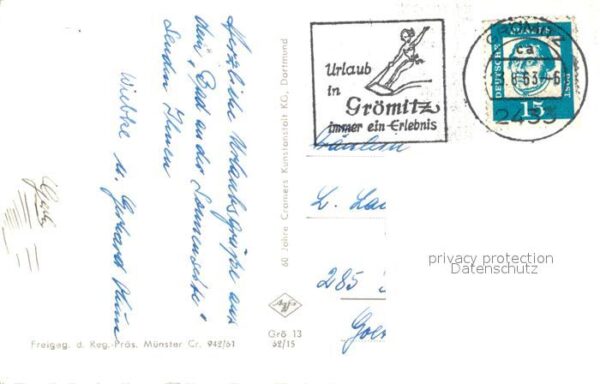 Herzliche Urlaubsgrüße aus
dem "Bad an der Sonnenseite"
senden Ihnen
Wiebke u. Gerhard
Freigeg. d. Reg.-Präs. Münster Cr. 942/61
60 Jahre Cramers Kunstanstalt KG, Dortmund
Grö 13
62/15
Urlaub
in
Grömitz
immer ein Erlebnis
GRÖMITZ
ca
8.63.-6
2433
DEUTSCHE
15
Fräulein
L.
285
privacy protection
Datenschutz